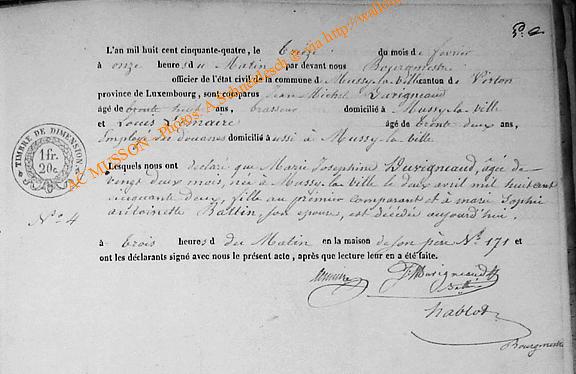 L'an mil huit cent cinquante-quatre, le treize du mois de février
à onze heures du Matin par devant nous Bourgmestre
officier de l'état civil de la commune de Mussy-la-ville canton de Virton
province de Luxembourg, sont comparus Jean Michel Duvigneaud
âgé de trente huit ans, brasseur domicilié à Mussy-la-ville
et Louis âgé de trente deux ans,
Employé des douanes domicilié aussi à Mussy-la-ville
Lesquels nous ont déclaré que Marie Josephine Duvigneaud, âgée de
vingt deux mois, née à Mussy-la-ville le deux avril mil huit cent
cinquante deux, fille au premier comparant et à marie Sophie
antoinette Ballin, son epouse, est décédée aujourd'hui
N° 4
à trois heures du Matin en la maison de son père N° 171 et
ont les déclarants signé avec nous le présent acte, après que lecture leur en a été faite.
JM Duvigneaud
Bourgmestre
TIMBRE DE DIMENSION
1 fr.
20c
AC MUSSON - Photos: A. Schmadesch @ via http://